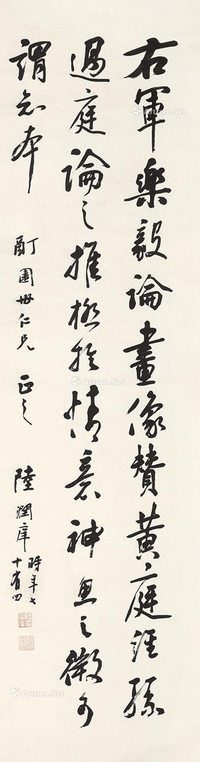 右軍樂毅論畫像贊黃庭經孫
過庭論之推極於情意神思之微可
謂知本
酊園世仁兄 正之
陸潤庠時年七
十有四